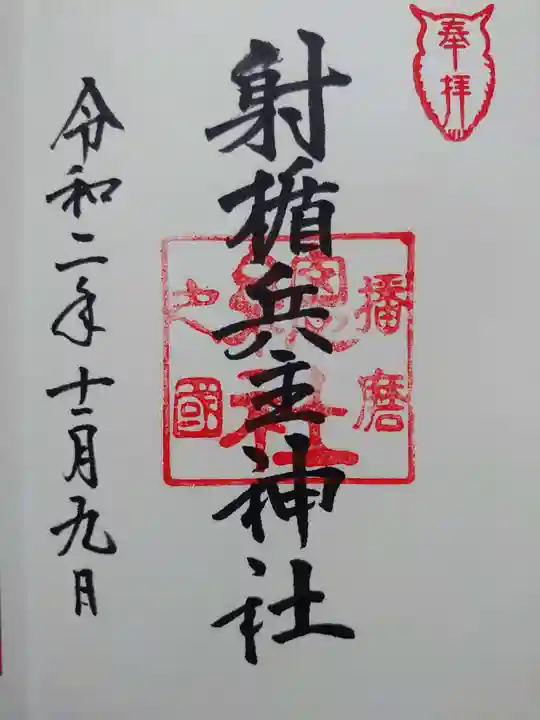 奉拝
播磨
総社
之國
射楯兵主神社
令和二年十一月九日